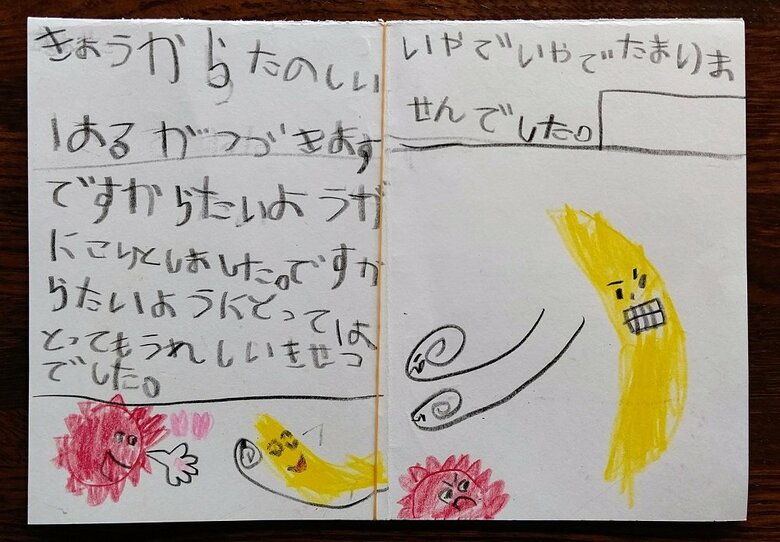 きょうからたのしい
はるがつづきます
ですからたいようが
にこりとしました。ですか
らたいようにとって
とってもうれしいきせつ
は
でした。
いやでいやでたまりま
せんでした。